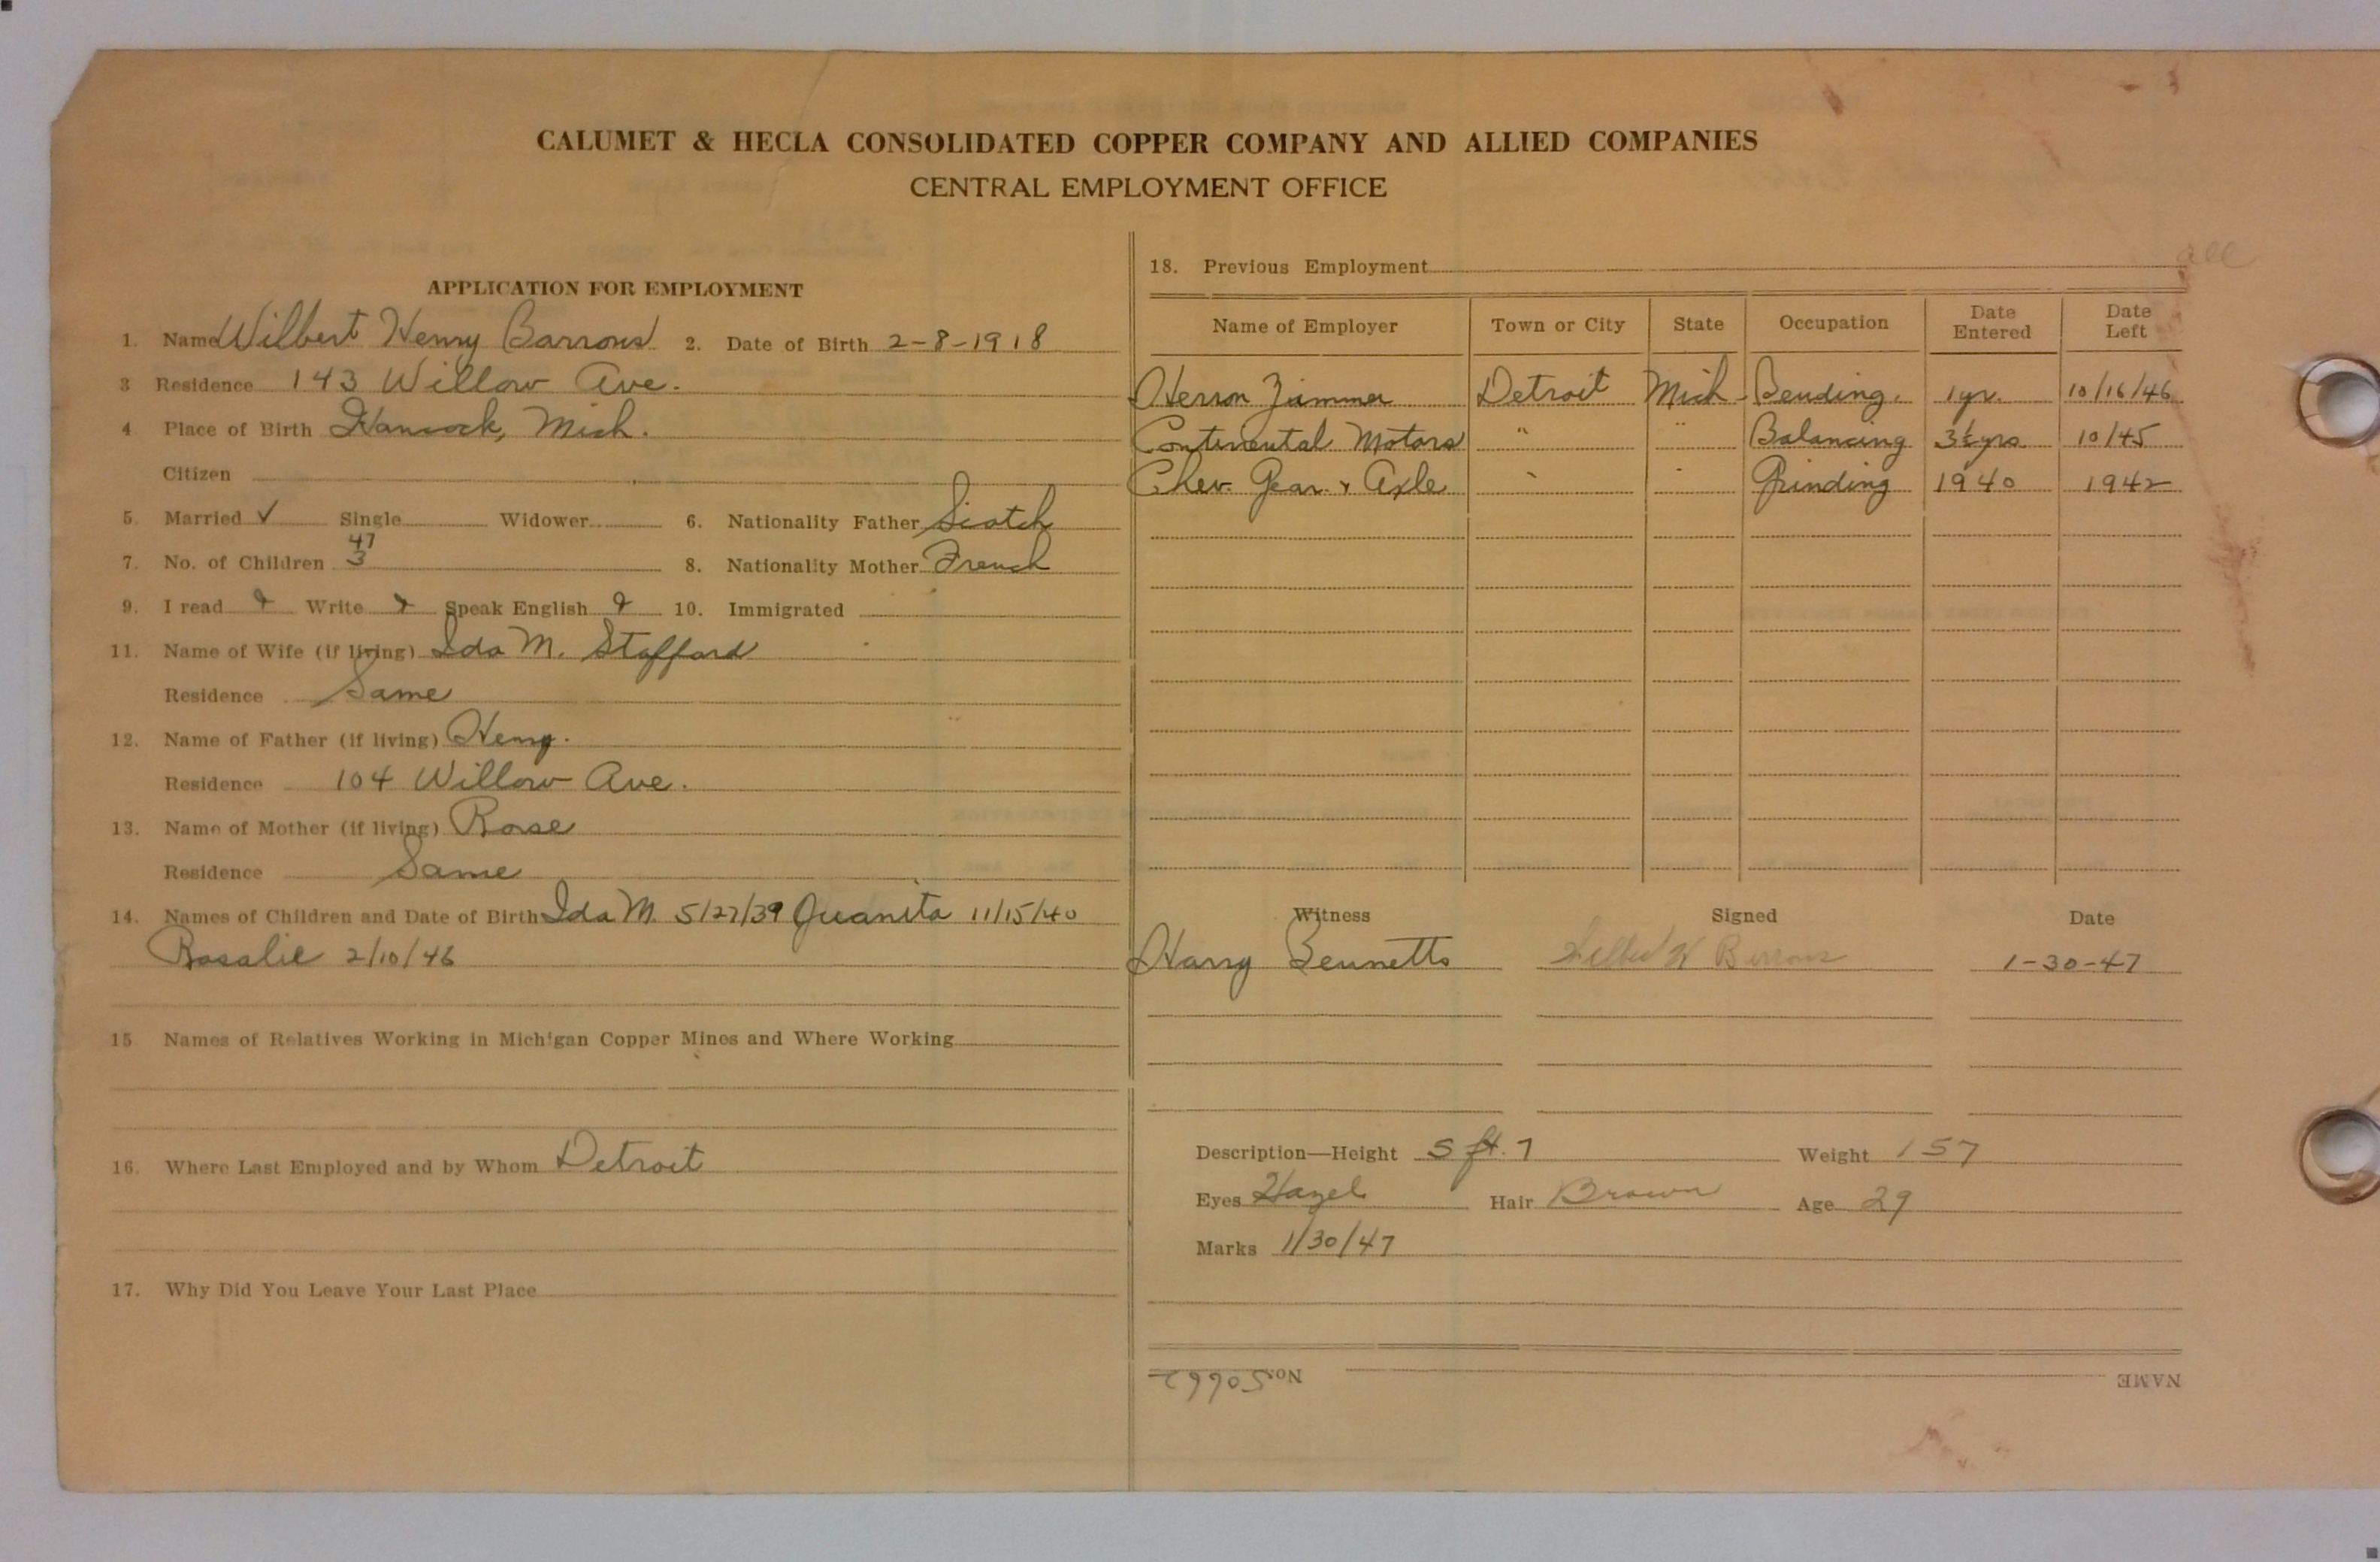 CALUMET & HECLA CONSOLIDATED COPPER COMPANY AND ALLIED COMPANIES
CENTRAL EMPLOYMENT OFFICE
APPLICATION FOR EMPLOYMENT
1. Name Wilbert Henry Barrows 2. Date of Birth 2-8-1918
3 Residence 143 Willow Ave.
4. Place of Birth Hancock, Mich.
Citizen
5. Married ✓ Single Widower 6. Nationality Father Scotch
47
7. No. of Children 3 8. Nationality Mother French
9. I read Write Speak English 10. Immigrated
11. Name of Wife (if living) Ida M. Stafford
Residence Same
12. Name of Father (if living) Henry.
Residence 104 Willow Ave.
13. Name of Mother (if living) Rose
Residence Same
14. Names of Children and Date of Birth Ida M. 5/27/39 Juanita 11/15/40
Rosalie 2/10/46
15 Names of Relatives Working in Michigan Copper Mines and Where Working
16. Where Last Employed and by Whom Detroit
17. Why Did You Leave Your Last Place
all
18. Previous Employment
Name of Employer Town or City State Occupation Date Entered Date Left
Herron Zimmer Detroit Mich. Bending. 1 yr. 10/16/46
Continental Motors " " Balancing 3½ yrs 10/45
Chev. Gear & Axle " " Grinding 1940 1942
Witness Signed Date
Harry Bennetts Wilbert H Barrows 1-30-47
Description—Height 5 ft. 7 Weight 157
Eyes Hazel Hair Brown Age 29
Marks 1/30/47
NAME No. 50662